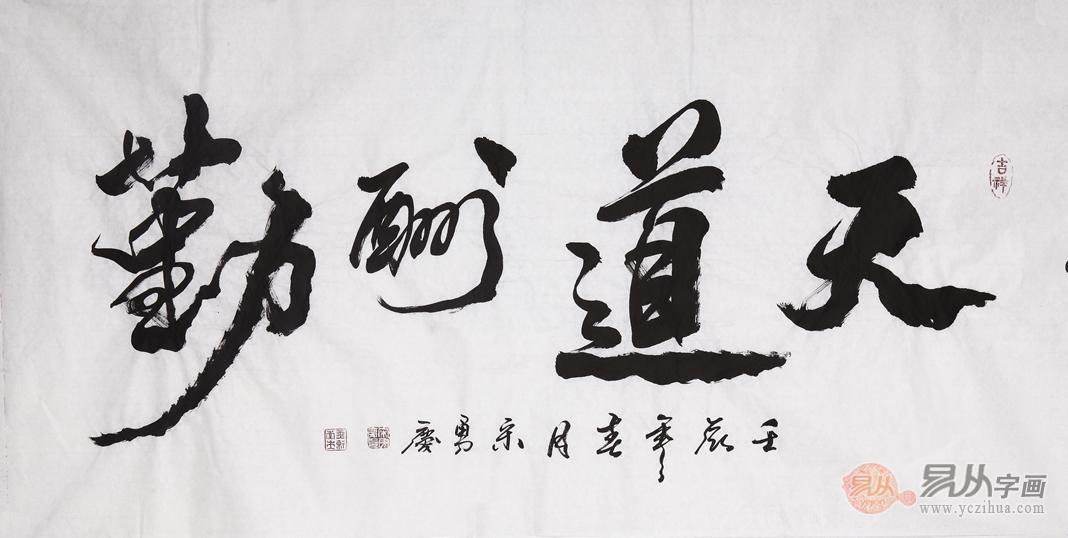 天道酬勤
吉祥
壬 年春月 勇慶
易从
易从字画
www.yczihua.com